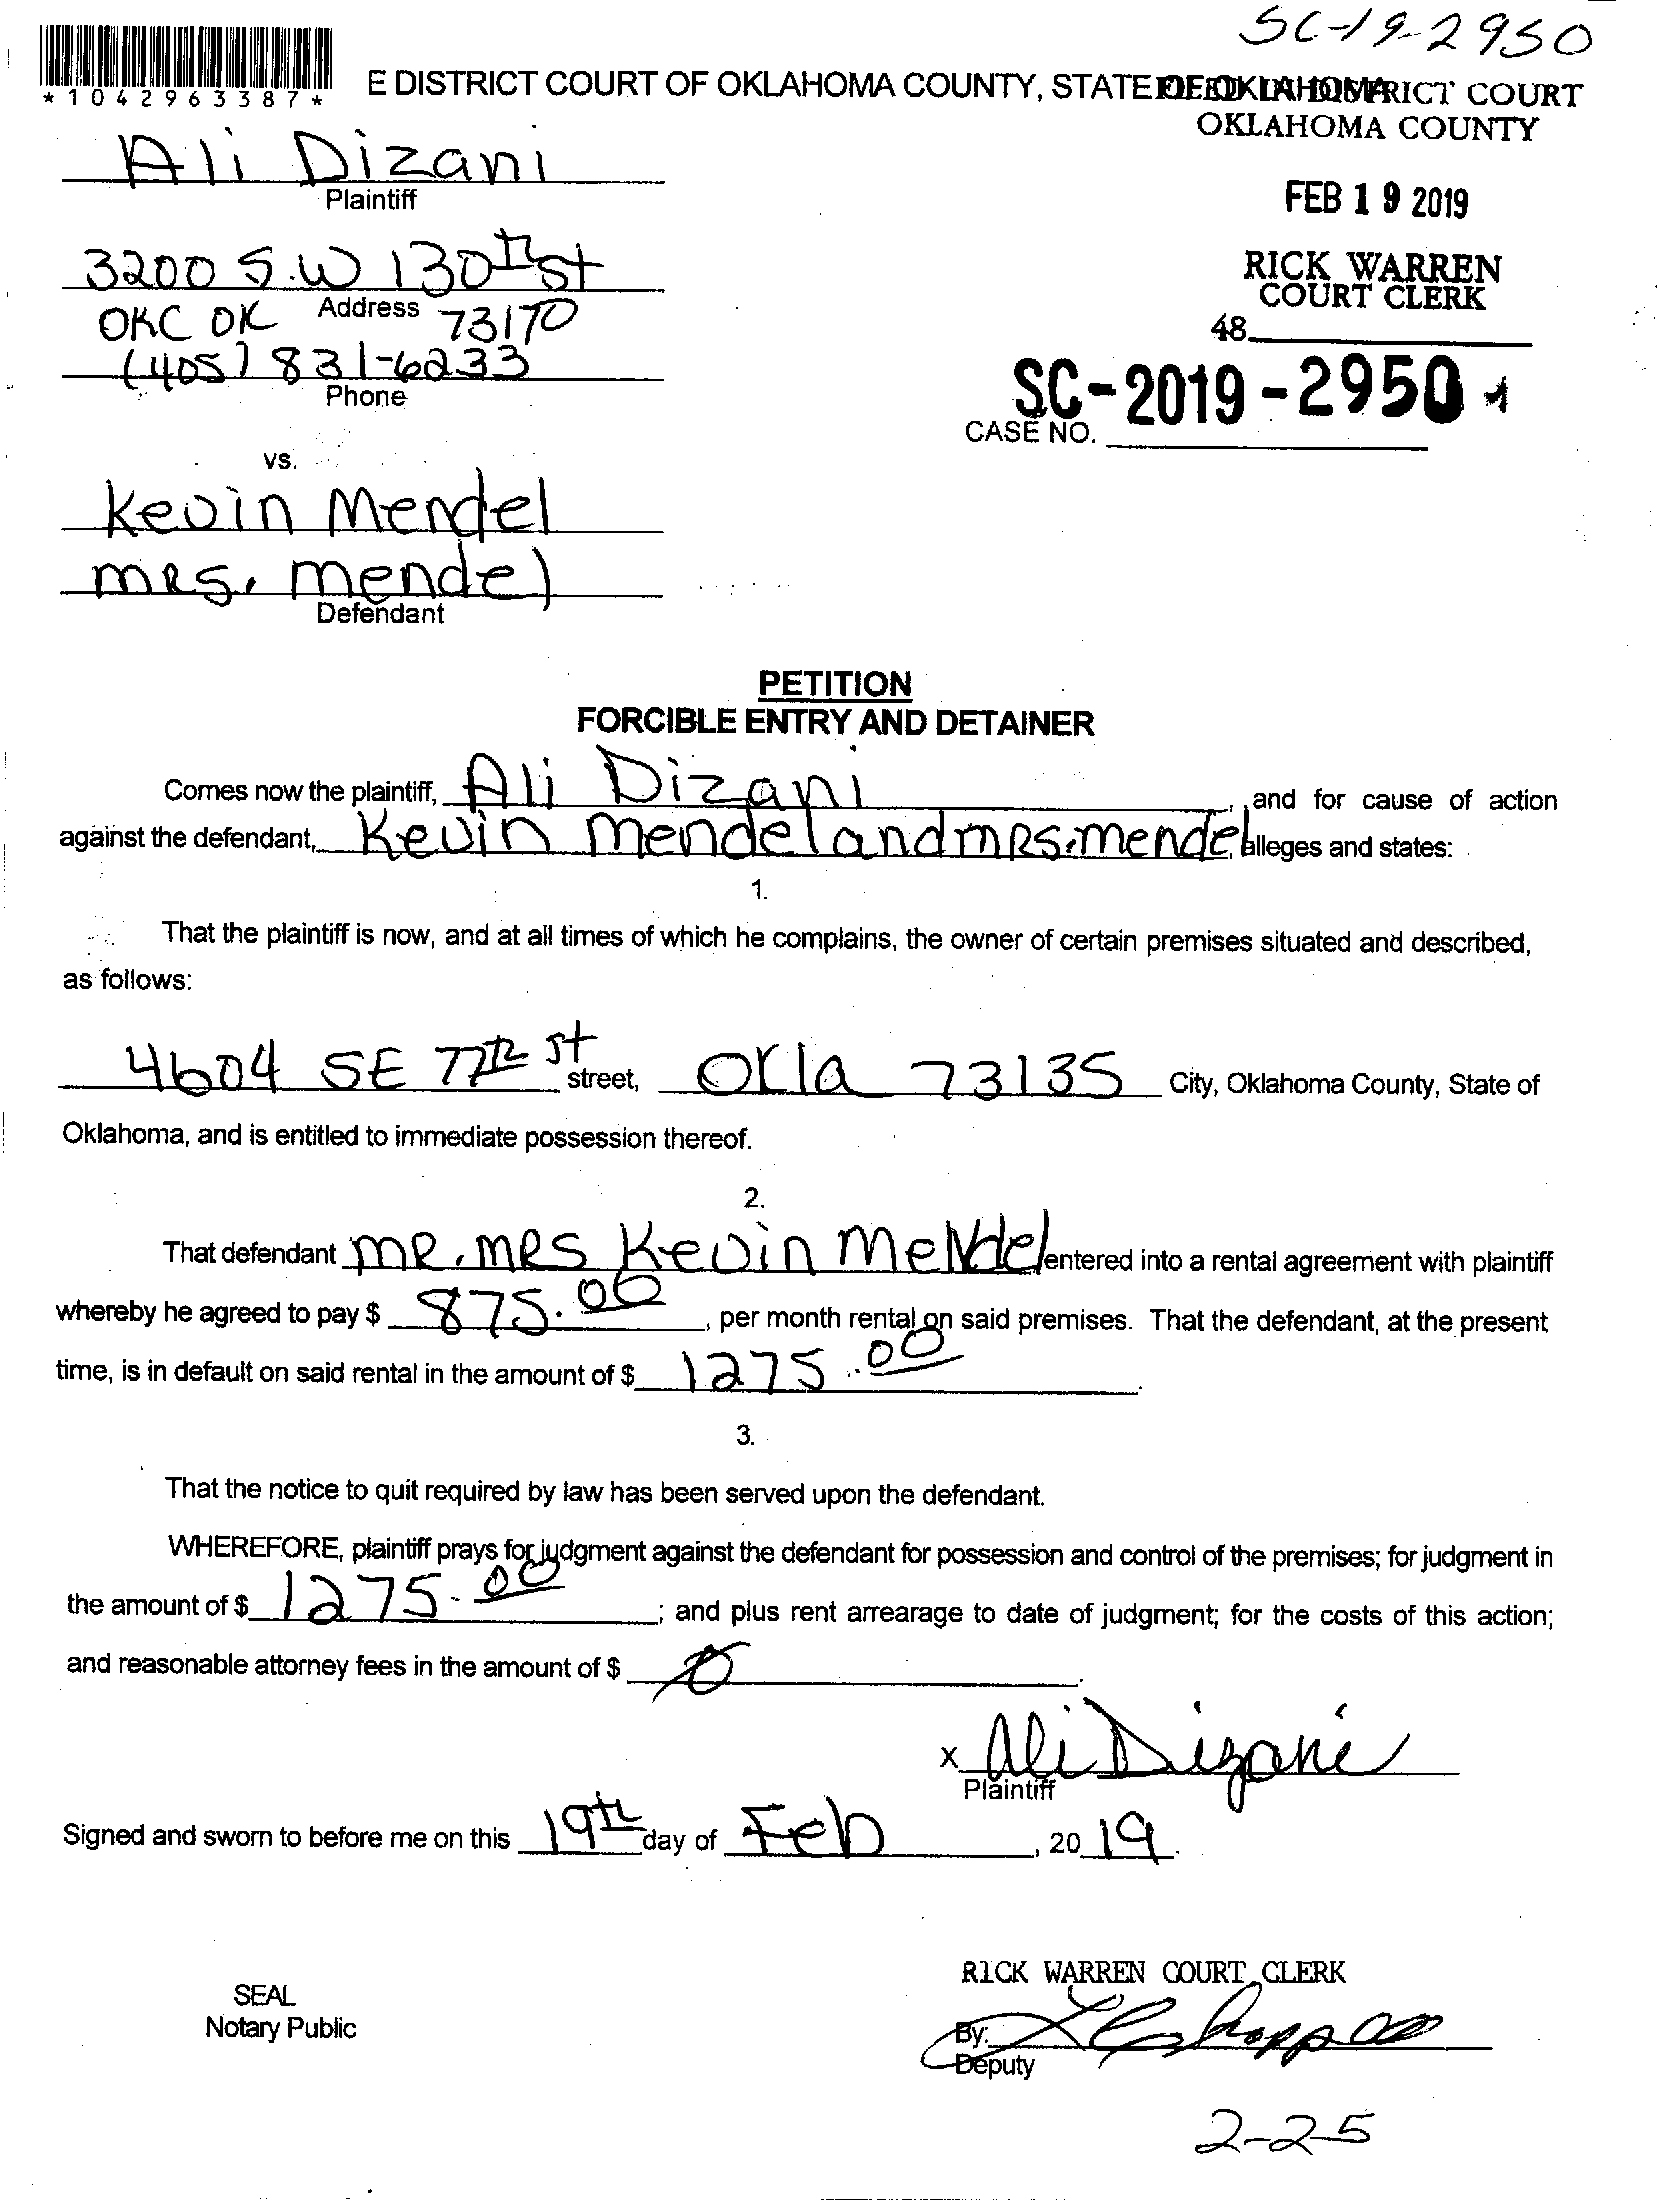 SC-19-2950
*1042963387*
E DISTRICT COURT OF OKLAHOMA COUNTY, STATE OF OKLAHOMA
FILED IN DISTRICT COURT
OKLAHOMA COUNTY
Ali Dizani
Plaintiff
FEB 19 2019
3200 S.W 130th St
Address
RICK WARREN
COURT CLERK
OKC OK 73170
48
(405) 831-6233
Phone
SC-2019-2950
CASE NO.
vs.
Kevin Mendel
MRS. Mendel
Defendant
PETITION
FORCIBLE ENTRY AND DETAINER
Comes now the plaintiff, Ali Dizani, and for cause of action
against the defendant, Kevin Mendel and MRS. Mendel, alleges and states:
1.
That the plaintiff is now, and at all times of which he complains, the owner of certain premises situated and described,
as follows:
4604 SE 77th St street, Okla 73135 City, Oklahoma County, State of
Oklahoma, and is entitled to immediate possession thereof.
2.
That defendant MR. MRS Kevin MeNdel entered into a rental agreement with plaintiff
whereby he agreed to pay $ 875.00, per month rental on said premises. That the defendant, at the present
time, is in default on said rental in the amount of $ 1275.00.
3.
That the notice to quit required by law has been served upon the defendant.
WHEREFORE, plaintiff prays for judgment against the defendant for possession and control of the premises; for judgment in
the amount of $ 1275.00; and plus rent arrearage to date of judgment; for the costs of this action;
and reasonable attorney fees in the amount of $ 0.
x Ali Dizani
Plaintiff
Signed and sworn to before me on this 19th day of Feb, 2019.
RICK WARREN COURT CLERK
SEAL
Notary Public
By:
Deputy
2-25